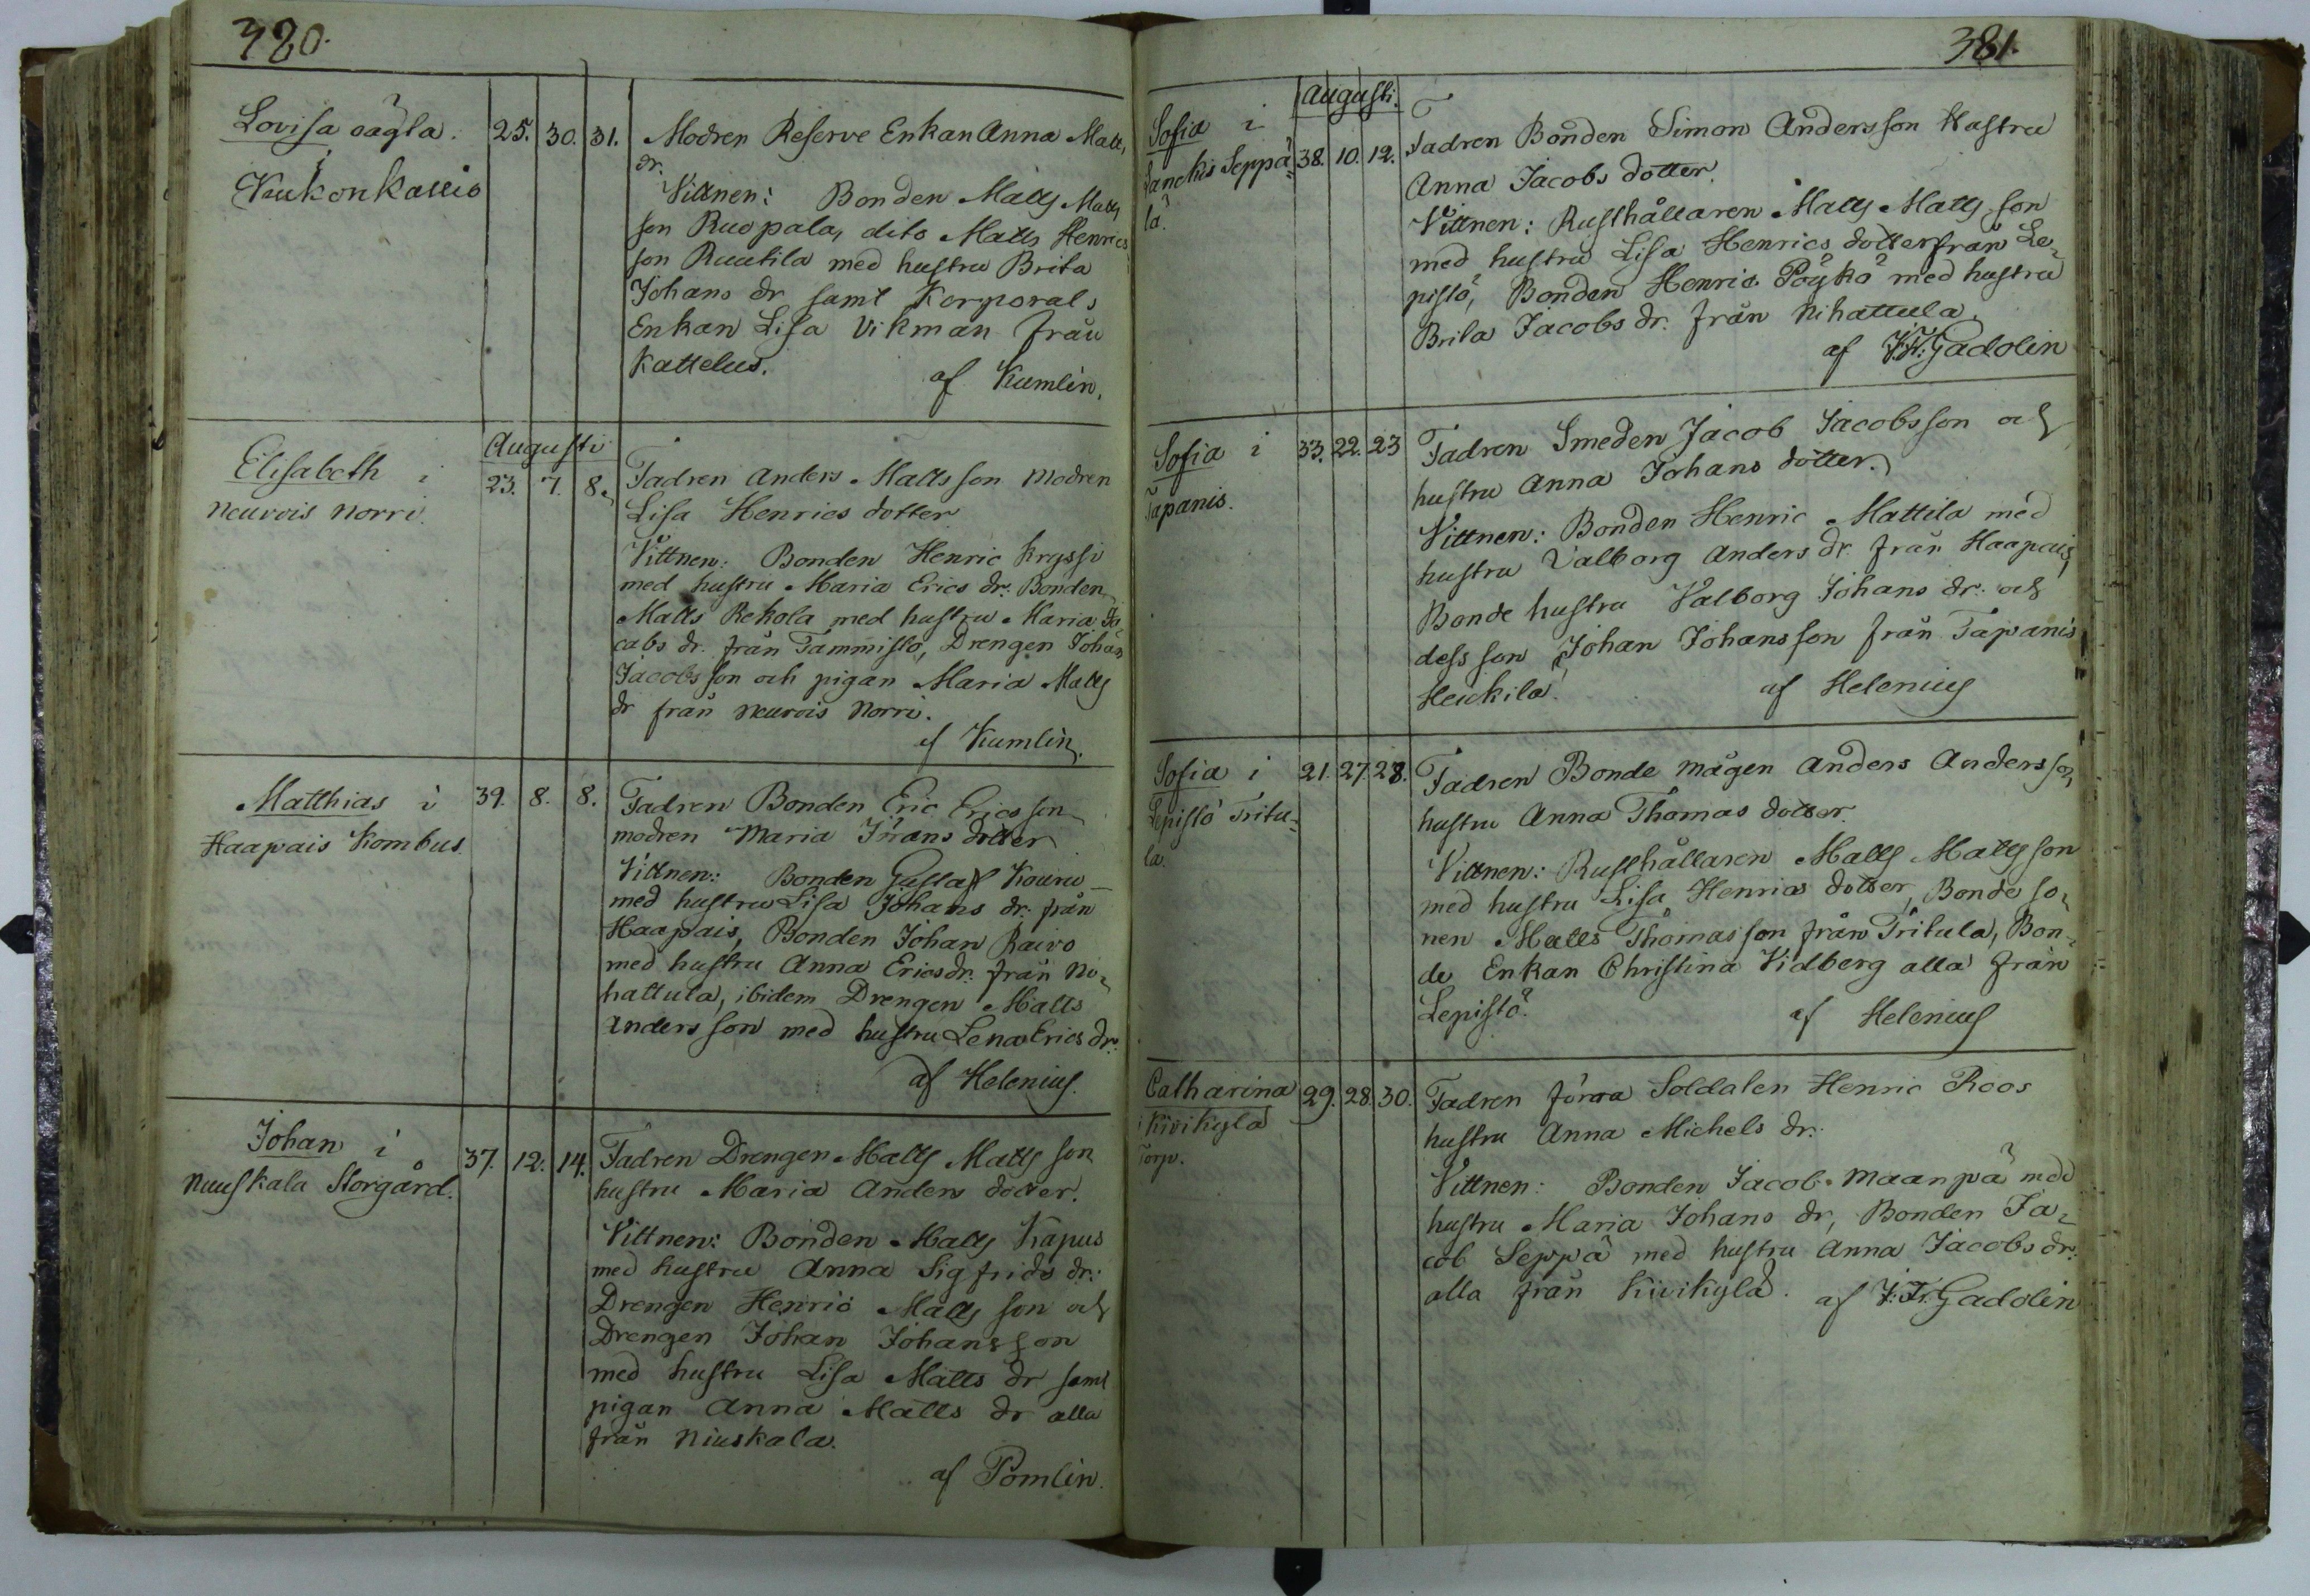 380.
Lovisa oägta.
i
Kukonkallio
25. 30. 31.
Modren Reserve Enkan Anna Matts
dr.
Vittnen: Bonden Matts Matts
son Ruopala, dito Matts Henrics
son Ruutila med hustru Brita
Johans dr samt Korporals
Enkan Lisa Vikman från
Kattelus.
af Kumlin.
Augusti
Elisabeth i
Neurois Norri.
23. 7. 8.
Fadren Anders Mattsson Modren
Lisa Henrics dotter
Vittnen: Bonden Henric Kryssi
med hustru Maria Erics dr: Bonden
Matts Rekola med hustru Maria Ja
cobs dr. från Tammisto, Drengen Johan
Jacobsson och pigan Maria Matts
dr från Neurois Norri.
af Kumlin.
Matthias i
Haapais Kombus.
39. 8. 8.
Fadren Bonden Eric Ericsson
modren Maria Jörans dotter
Vittnen: Bonden Gustaf Kouru
med hustru Lisa Johans dr: från
Haapais, Bonden Johan Raivo
med hustru Anna Ericsdr: från Ni-
hattula, ibidem Drengen Matts
Andersson med hustru Lena Erics dr:
af Helenius.
Johan i
Nuuskala Storgård.
37. 12. 14.
Fadren Drengen Matts Matts son
hustru Maria Anders dotter.
Vittnen: Bonden Matts Kapus
med hustru Anna Sigfrids dr:
Drengen Henric Matts son och
Drengen Johan Johansson
med hustru Lisa Matts dr samt
pigan Anna Matts dr alla
från Niuskala.
af Pomlin.
381.
Augusti.
Sofia i
Sanckis Seppä-
lä.
38. 10. 12.
Fadren Bonden Simon Andersson Hustru
Anna Jacobs dotter.
Vittnen: Rusthållaren Matts Matts son
med hustru Lisa Henrics dotter från Le-
pistö, Bonden Henric Pöykö med hustru
Brita Jacobs dr. från Nihattula.
af J. Fr. Gadolin
Sofia i
Tapanis.
33. 22. 23
Fadren Smeden Jacob Jacobsson och
hustru Anna Johans dotter.
Vittnen: Bonden Henric Mattila med
hustru Valborg Anders dr. från Haapais,
Bonde hustru Valborg Johans dr: och
dess son Johan Johansson från Tapanis
Heickilä.
af Helenius
Sofia i
Lepistö Tritu-
la.
21. 27. 28.
Fadren Bonde mågen Anders Andersson
hustru Anna Thomas dotter.
Vittnen: Rusthållaren Matts Matts son
med hustru Lisa Henrics dotter, Bonde so-
nen Matts Thomasson från Tritula, Bon-
de Enkan Christina Vidberg alla från
Lepistö.
af Helenius
Catharina
i Kivikylä
Torp.
29. 28. 30.
Fadren förra Soldaten Henric Roos
hustru Anna Michels dr:
Vittnen: Bonden Jacob Maanpä med
hustru Maria Johans dr, Bonden Ja-
cob Seppä med hustru Anna Jacobs dr:
alla från Kivikylä. af J. Fr. Gadolin